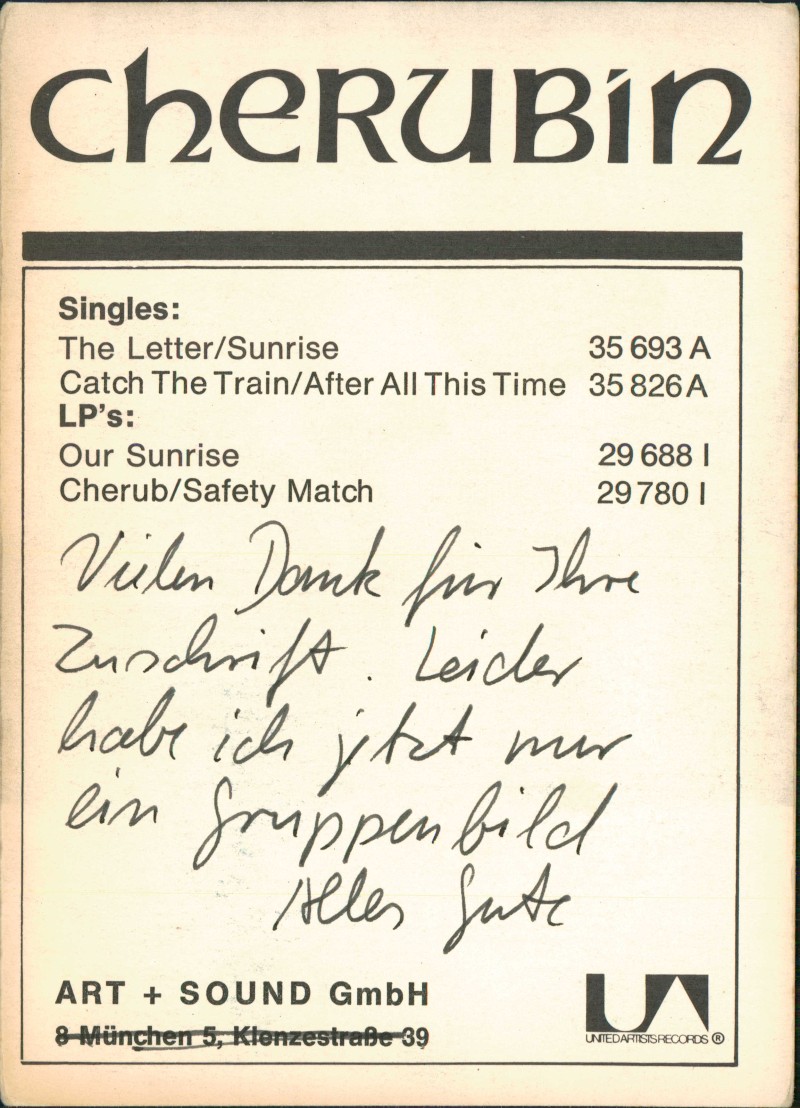 CHERUBIN
Singles:
The Letter/Sunrise 35 693 A
Catch The Train/After All This Time 35 826 A
LP's:
Our Sunrise 29 688 I
Cherub/Safety Match 29 780 I
Vielen Dank für Ihre
Zuschrift. Leider
habe ich jetzt nur
ein Gruppenbild
Alles Gute
ART + SOUND GmbH
8 München 5, Klenzestraße 39
UA
UNITED ARTISTS RECORDS ®